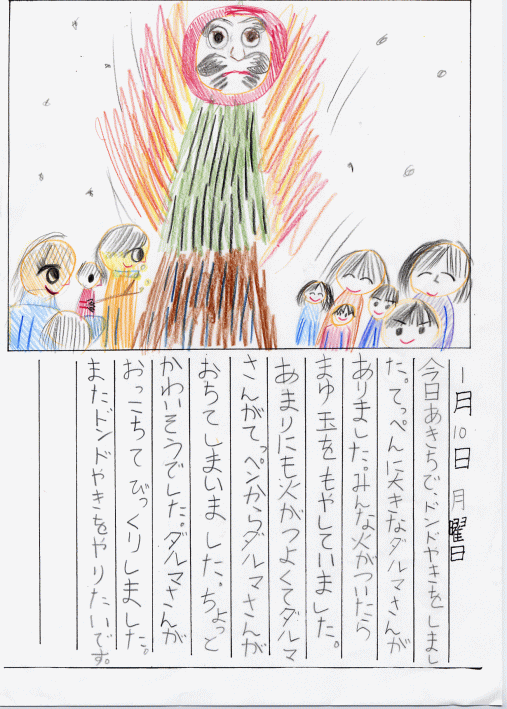 一月10日 月曜日
今日あきちで、ドンドやきをしまし
た。てっぺんに大きなダルマさんが
ありました。みんな火がついたら
まゆ玉をもやしていました。
あまりにも火がつよくてダルマ
さんがてっペンからダルマさんが
おちてしまいました。ちょっと
かわいそうでした。ダルマさんが
おっこちてびっくりしました。
またドンドやきをやりたいです。